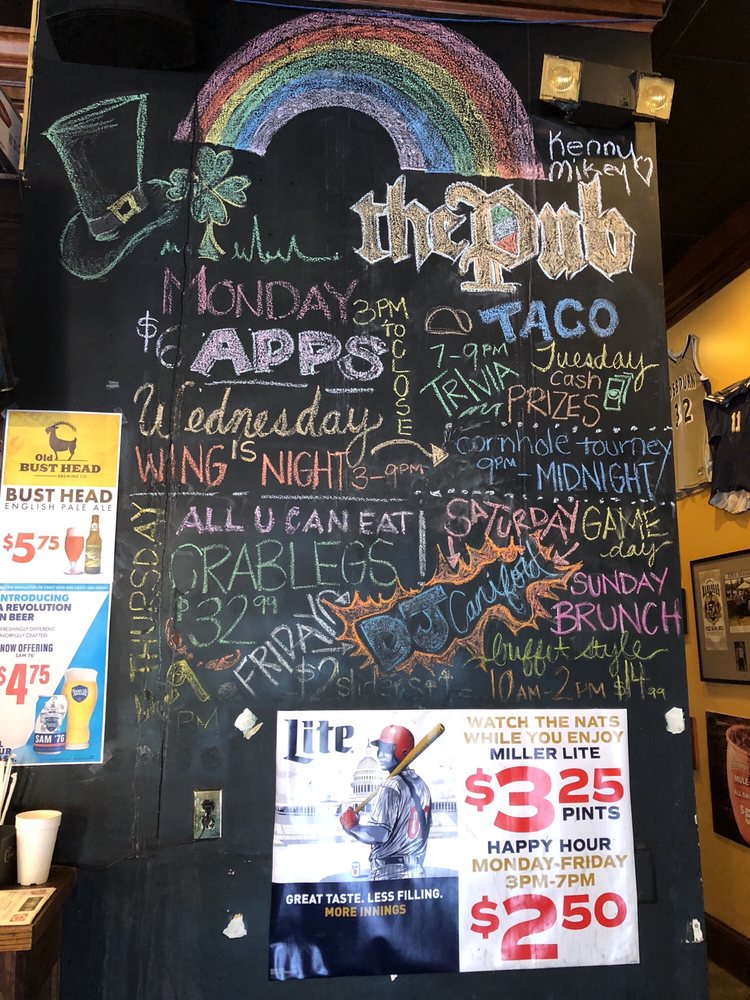 Kenny
Mikey
the Pub
MONDAY
$6 APPS
3PM
TO
CLOSE
TACO
Tuesday
7-9PM
TRIVIA
Cash
PRIZES
Wednesday
IS
WING NIGHT 3-9PM
cornhole tourney
9PM - MIDNIGHT
THURSDAY
ALL U CAN EAT
CRABLEGS
$32.99
SATURDAY GAME
day
FRIDAYS
DJ
$2 sliders
SUNDAY
BRUNCH
buffet style
10AM-2PM $14.99
PM
Old
BUST HEAD
BREWING CO.
BUST HEAD
ENGLISH PALE ALE
$5.75
INTRODUCING
A REVOLUTION
IN BEER
NOW OFFERING
SAM '76
$4.75
SAM '76
32
Lite
GREAT TASTE. LESS FILLING.
MORE INNINGS
WATCH THE NATS
WHILE YOU ENJOY
MILLER LITE
$3.25
PINTS
HAPPY HOUR
MONDAY-FRIDAY
3PM-7PM
$2.50